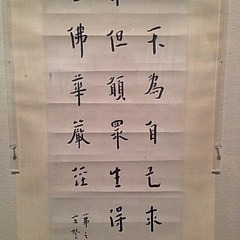 不為自己求
但願眾生得
佛華嚴經